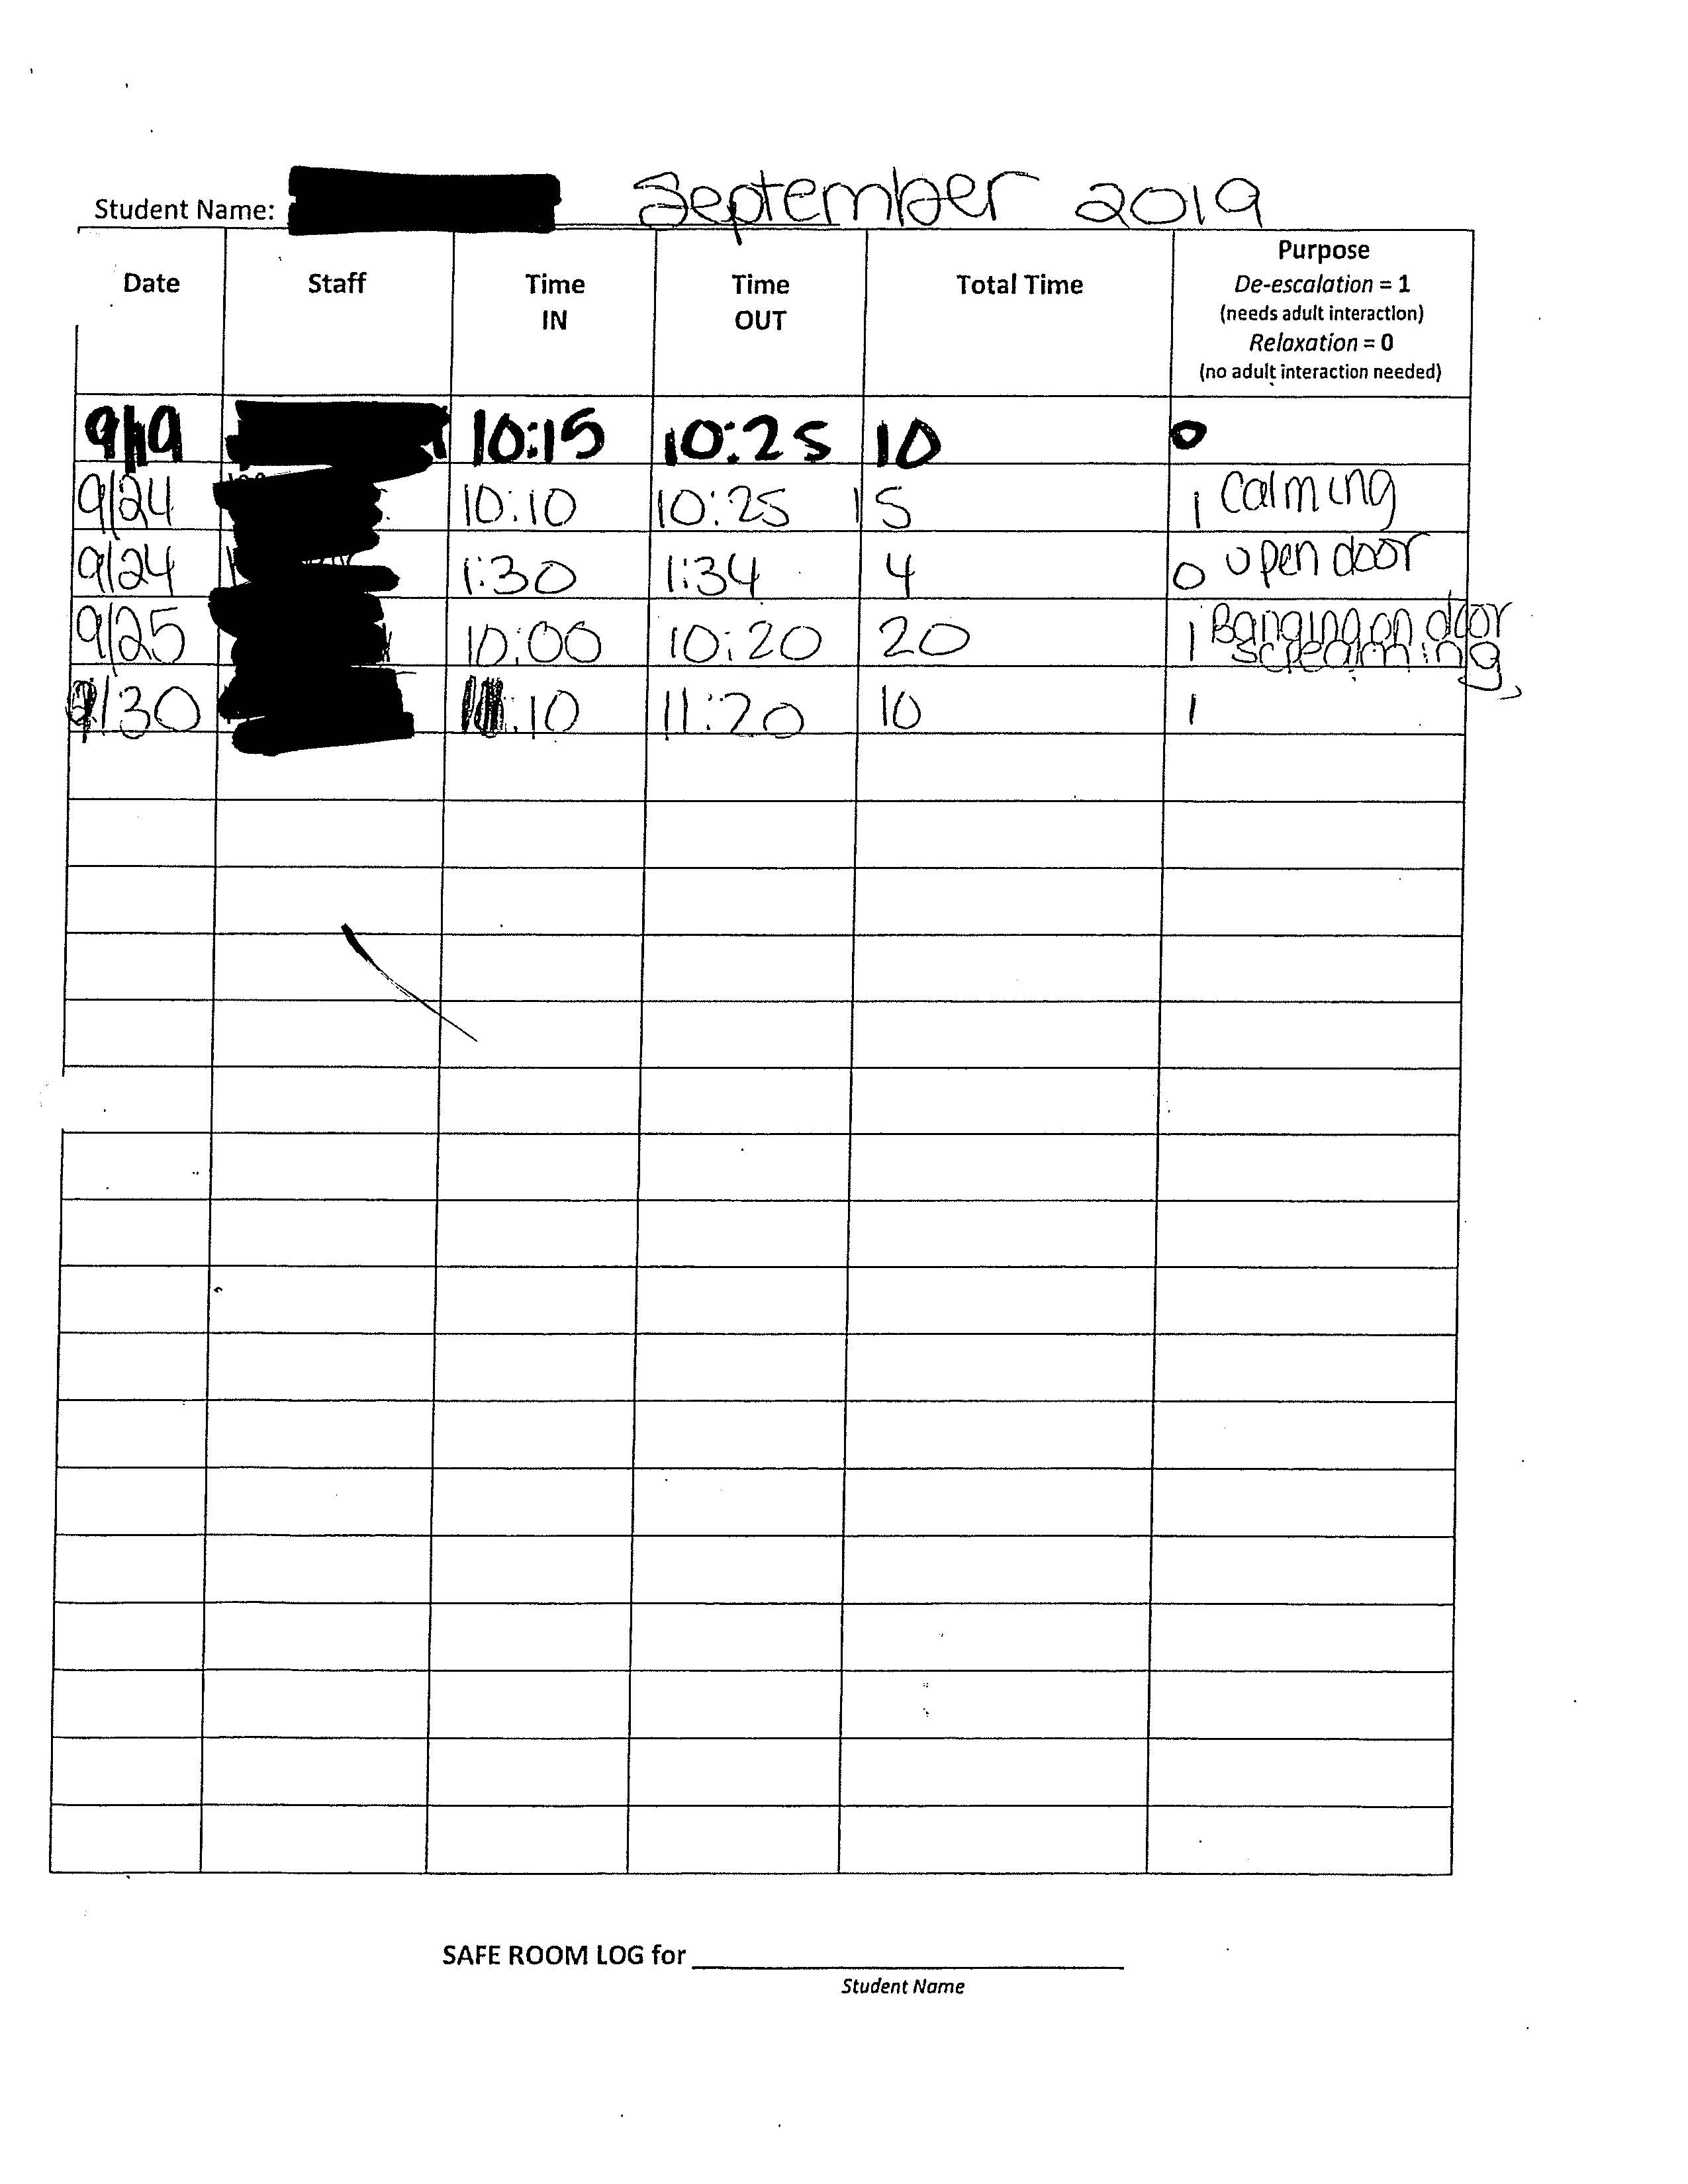 Student Name: September 2019
Date Staff Time IN Time OUT Total Time Purpose
De-escalation = 1
(needs adult interaction)
Relaxation = 0
(no adult interaction needed)
9/19 10:15 10:25 10 0
9/24 10:10 10:25 15 1 calming
9/24 1:30 1:34 4 0 open door
9/25 10:00 10:20 20 1 Banging on door
screaming
9/30 :10 11:20 10 1
SAFE ROOM LOG for
Student Name